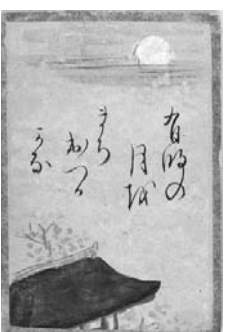 有明の
月を
まち
出つる
かな